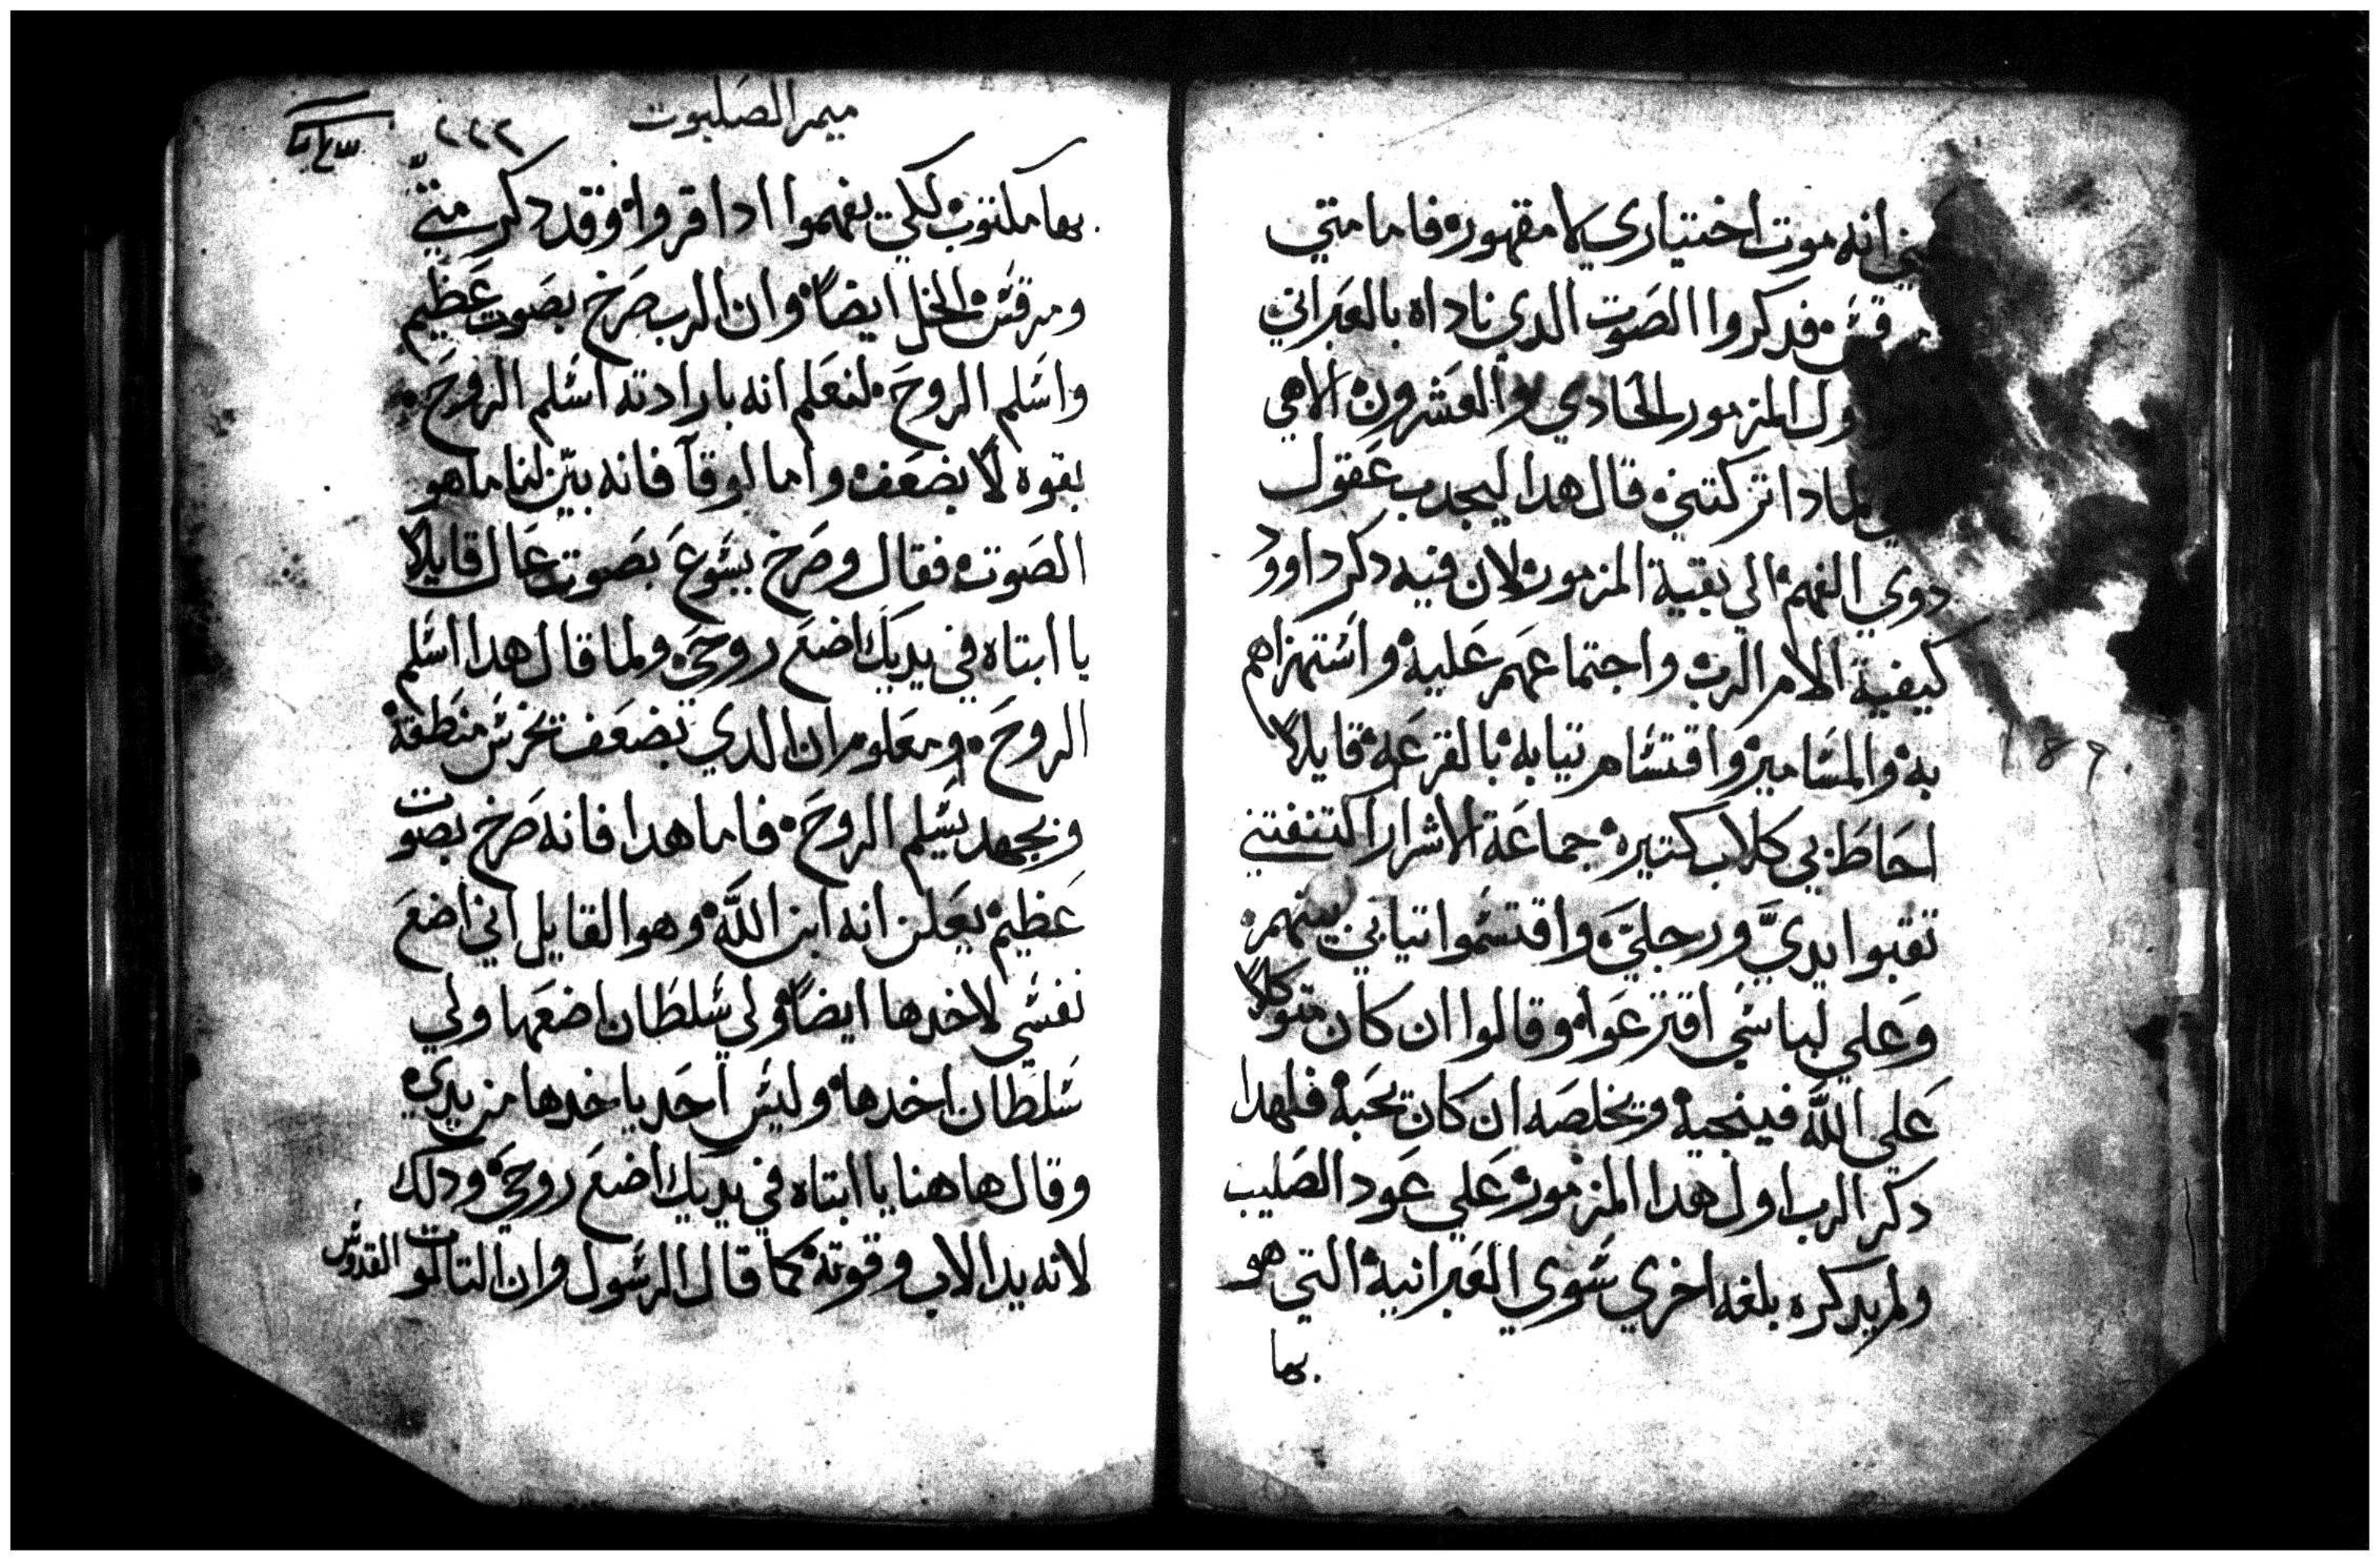 انه موت اختياري لا مقهور فاما متي
قس فدكروا الصوت الدي ناداه بالعبراني
ول المزمور الحادي والعشرون الاهي
لمادا تركتني قال هدا ليجدب عقول
دوي الفهم الي بقية المزمور لان فيه دكر داوود
كيفية الام الرب واجتماعهم عليه واستهزاهم
به والمسامير واقتسام تيابه بالقرعه قايلا
احاط بي كلاب كتيره جماعة الاشرار اكتنفتني
تقبوا يديّ ورجليّ واقتسموا تيابي بينهم
وعلي لباسي اقترعوا وقالوا ان كان متوكلا
علي اللّه فينجيه ويخلصه ان كان يحبه فلهدا
دكر الرب اول هدا المزمور علي عود الصليب
ولم يدكره بلغه اخري سوي العبرانيه التي هو
بها
ميمر الصلبوت
٢٢٢
بها مكتوب لكي يفهموا ادا قروا وقد دكر متيّ
ومرقس الخل ايضاً وان الرب صرخ بصوت عظيم
واسلم الروح لنعلم انه بارادته اسلم الروح
بقوه لا بضعف واما لوقا فانه بيّن لنا ما هو
الصوت فقال وصرخ يسوع بصوت عال قايلا
يا ابتاه في يديك اضع روحي ولما قال هدا اسلم
الروح ومعلوم ان الدي يضعف تخرس منطقه
وبجهد يسلم الروح فاما هدا فانه صرخ بصوت
عظيم يعلن انه ابن اللّه وهو القايل اني اضع
نفسي لاخدها ايضاً ولي سلطان اضعها ولي
سلطان اخدها وليس احد ياخدها من يدي
وقال هاهنا يا ابتاه في يديك اضع روحي ودلك
لانه يد الاب وقوته كما قال الرسول وان التالوت القدوس